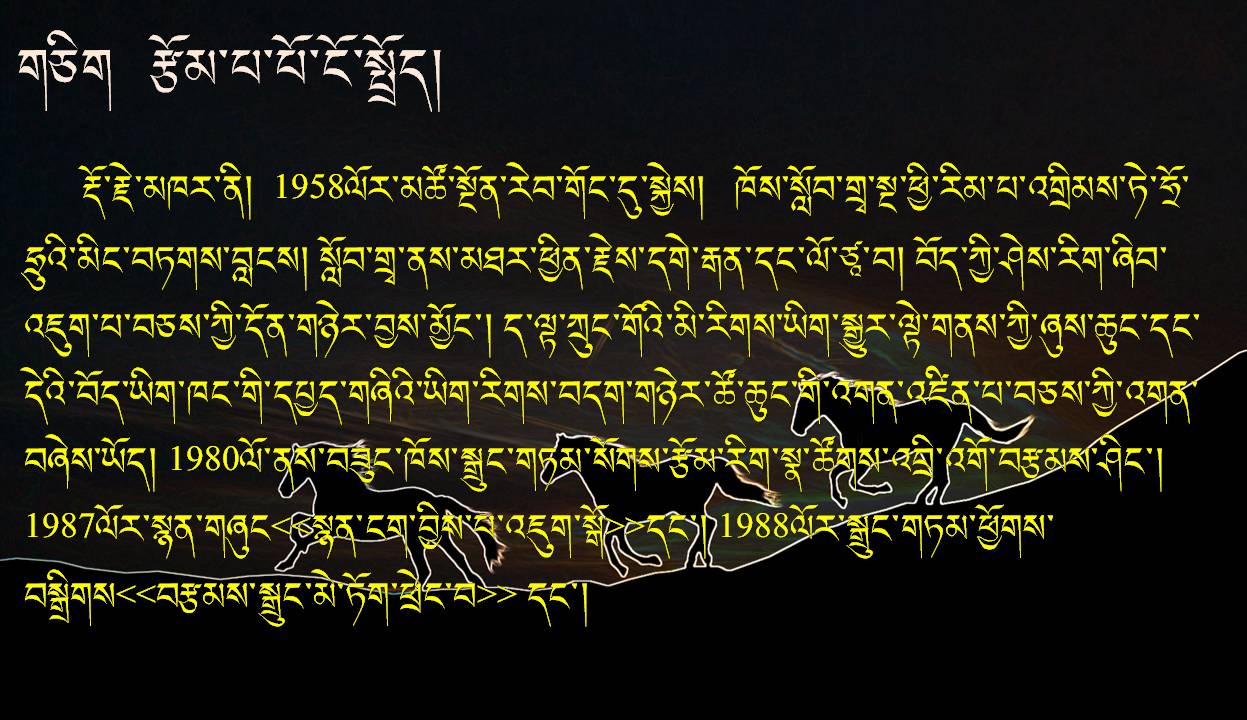 གཅིག རྩོམ་པ་པོ་ངོ་སྤྲོད།
རྡོ་རྗེ་མཁར་ནི། 1958ལོར་མཚོ་སྔོན་རེབ་གོང་དུ་སྐྱེས། ཁོས་སློབ་གྲྭ་སྔ་ཕྱི་རིམ་པ་འགྲིམས་ཏེ་ཧྲོ་
ཧྲུའི་མིང་བཏགས་བླངས། སློབ་གྲྭ་ནས་མཐར་ཕྱིན་རྗེས་དགེ་རྒན་དང་ལོ་ཙཱ་བ། བོད་ཀྱི་ཤེས་རིག་ཞིབ་
འཇུག་པ་བཅས་ཀྱི་དོན་གཉེར་བྱས་མྱོང་། ད་ལྟ་ཀྲུང་གོའི་མི་རིགས་ཡིག་སྒྱུར་ལྟེ་གནས་ཀྱི་ཞུས་ཆུང་དང་
དེའི་བོད་ཡིག་ཁང་གི་དཔྱད་གཞིའི་ཡིག་རིགས་བདག་གཉེར་ཚོ་ཆུང་གི་འགན་འཛིན་པ་བཅས་ཀྱི་འགན་
བཞེས་ཡོད། 1980ལོ་ནས་བཟུང་ཁོས་སྒྲུང་གཏམ་སོགས་རྩོམ་རིག་སྣ་ཚོགས་འབྲི་འགོ་བརྩམས་ཤིང་།
1987ལོར་སྙན་གཞུང<<སྙན་ངག་བྱིས་པ་འཇུག་སྒོ>>དང་། 1988ལོར་སྒྲུང་གཏམ་ཕྱོགས་
བསྒྲིགས<<བརྩམས་སྒྲུང་མེ་ཏོག་ཕྲེང་བ>> དང་།